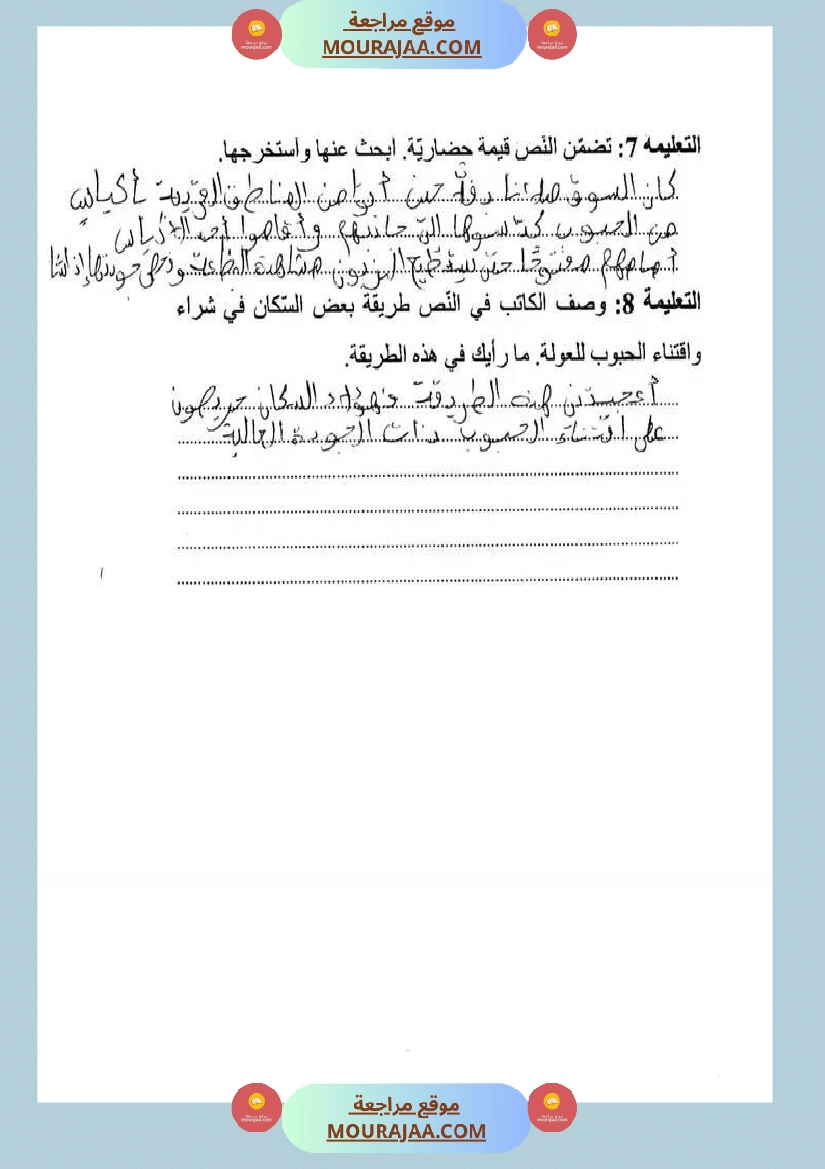 موقع مراجعة
MOURAJAA.COM
التعليمة 7: تضمّن النّص قيمة حضاريّة. ابحث عنها واستخرجها.
كان السوق حين من المناطق القريبة أكياس
من الحبوب كدّسوها إلى جانبهم وأقاموا أحد الأكياس
أمامهم مفتوحًا حتى يستطيع الزبون مشاهدة البضاعة وفحص جودتها إذا شاء
التعليمة 8: وصف الكاتب في النّص طريقة بعض السّكان في شراء
واقتناء الحبوب للعولة. ما رأيك في هذه الطريقة.
أعجبتني هذه الطريقة فهؤلاء السكان حريصون
على اقتناء الحبوب ذات الجودة العالية
موقع مراجعة
MOURAJAA.COM